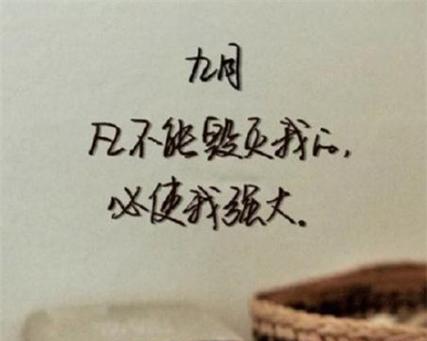 九月
凡不能毁灭我的,
必使我强大。